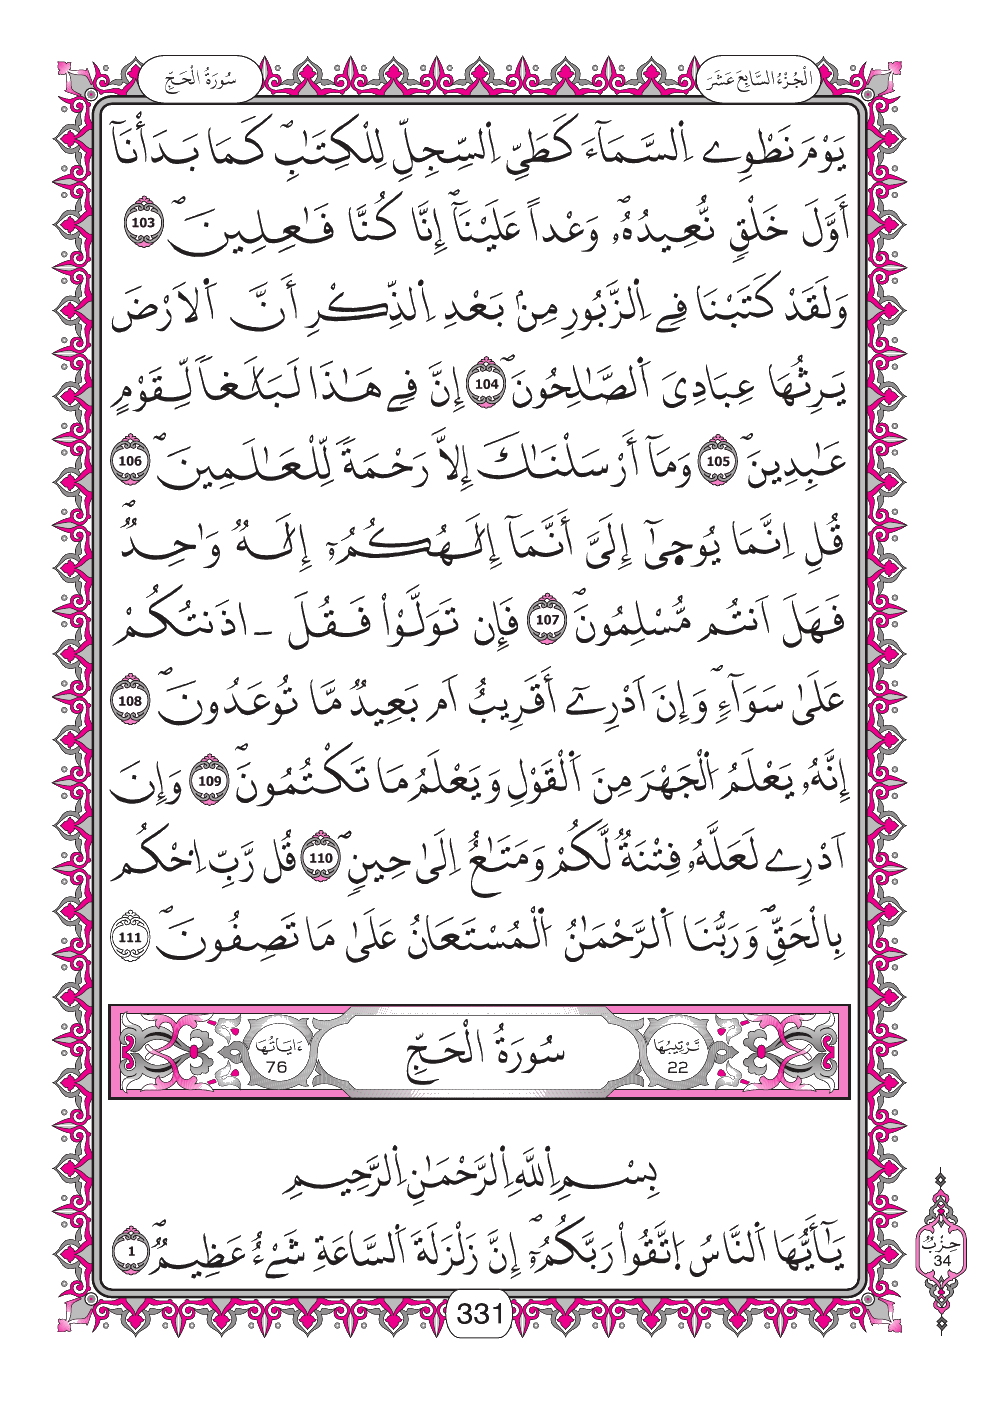 سُورَةُ الْحَجِّ
الْجُزْءُ السَّابِعَ عَشَرَ
يَوْمَ نَطْوِے اِ۬لسَّمَآءَ كَطَيِّ اِ۬لسِّجِلِّ لِلْكِتَٰبِۖ كَمَا بَدَأْنَآ
أَوَّلَ خَلْقٖ نُّعِيدُهُۥۖ وَعْداً عَلَيْنَآۖ إِنَّا كُنَّا فَٰعِلِينَۖ 103
وَلَقَدْ كَتَبْنَا فِے اِ۬لزَّبُورِ مِنۢ بَعْدِ اِ۬لذِّكْرِ أَنَّ اَ۬لَارْضَ
يَرِثُهَا عِبَادِيَ اَ۬لصَّٰلِحُونَۖ 104 إِنَّ فِے هَٰذَا لَبَلَٰغاٗ لِّقَوْمٍ
عَٰبِدِينَۖ 105 وَمَآ أَرْسَلْنَٰكَ إِلَّا رَحْمَةٗ لِّلْعَٰلَمِينَۖ 106
قُلِ اِنَّمَا يُوح۪يٰٓ إِلَيَّ أَنَّمَآ إِلَٰهُكُمُۥٓ إِلَٰهٞ وَٰحِدٞۖ
فَهَلَ اَنتُم مُّسْلِمُونَۖ 107 فَإِن تَوَلَّوْاْ فَقُلَ ـ اذَنتُكُمْ
عَلَىٰ سَوَآءٖۖ وَإِنَ اَدْرِےٓ أَقَرِيبٌ اَم بَعِيدٞ مَّا تُوعَدُونَۖ 108
إِنَّهُۥ يَعْلَمُ اُ۬لْجَهْرَ مِنَ اَ۬لْقَوْلِ وَيَعْلَمُ مَا تَكْتُمُونَۖ 109 وَإِنَ
اَدْرِے لَعَلَّهُۥ فِتْنَةٞ لَّكُمْ وَمَتَٰعٌ اِلَىٰ حِينٖۖ 110 قُل رَّبِّ اِ۟حْكُم
بِالْحَقِّۖ وَرَبُّنَا اَ۬لرَّحْمَٰنُ اُ۬لْمُسْتَعَانُ عَلَىٰ مَا تَصِفُونَۖ 111
تَرْتِيبُهَا 22
سُورَةُ الْحَجِّ
ءَايَاتُهَا 76
بِسْمِ اِ۬للَّهِ اِ۬لرَّحْمَٰنِ اِ۬لرَّحِيمِ
يَٰٓأَيُّهَا اَ۬لنَّاسُ اُ۪تَّقُواْ رَبَّكُمُۥٓۖ إِنَّ زَلْزَلَةَ اَ۬لسَّاعَةِ شَےْءٌ عَظِيمٞۖ 1
حِزْبُ
34
331